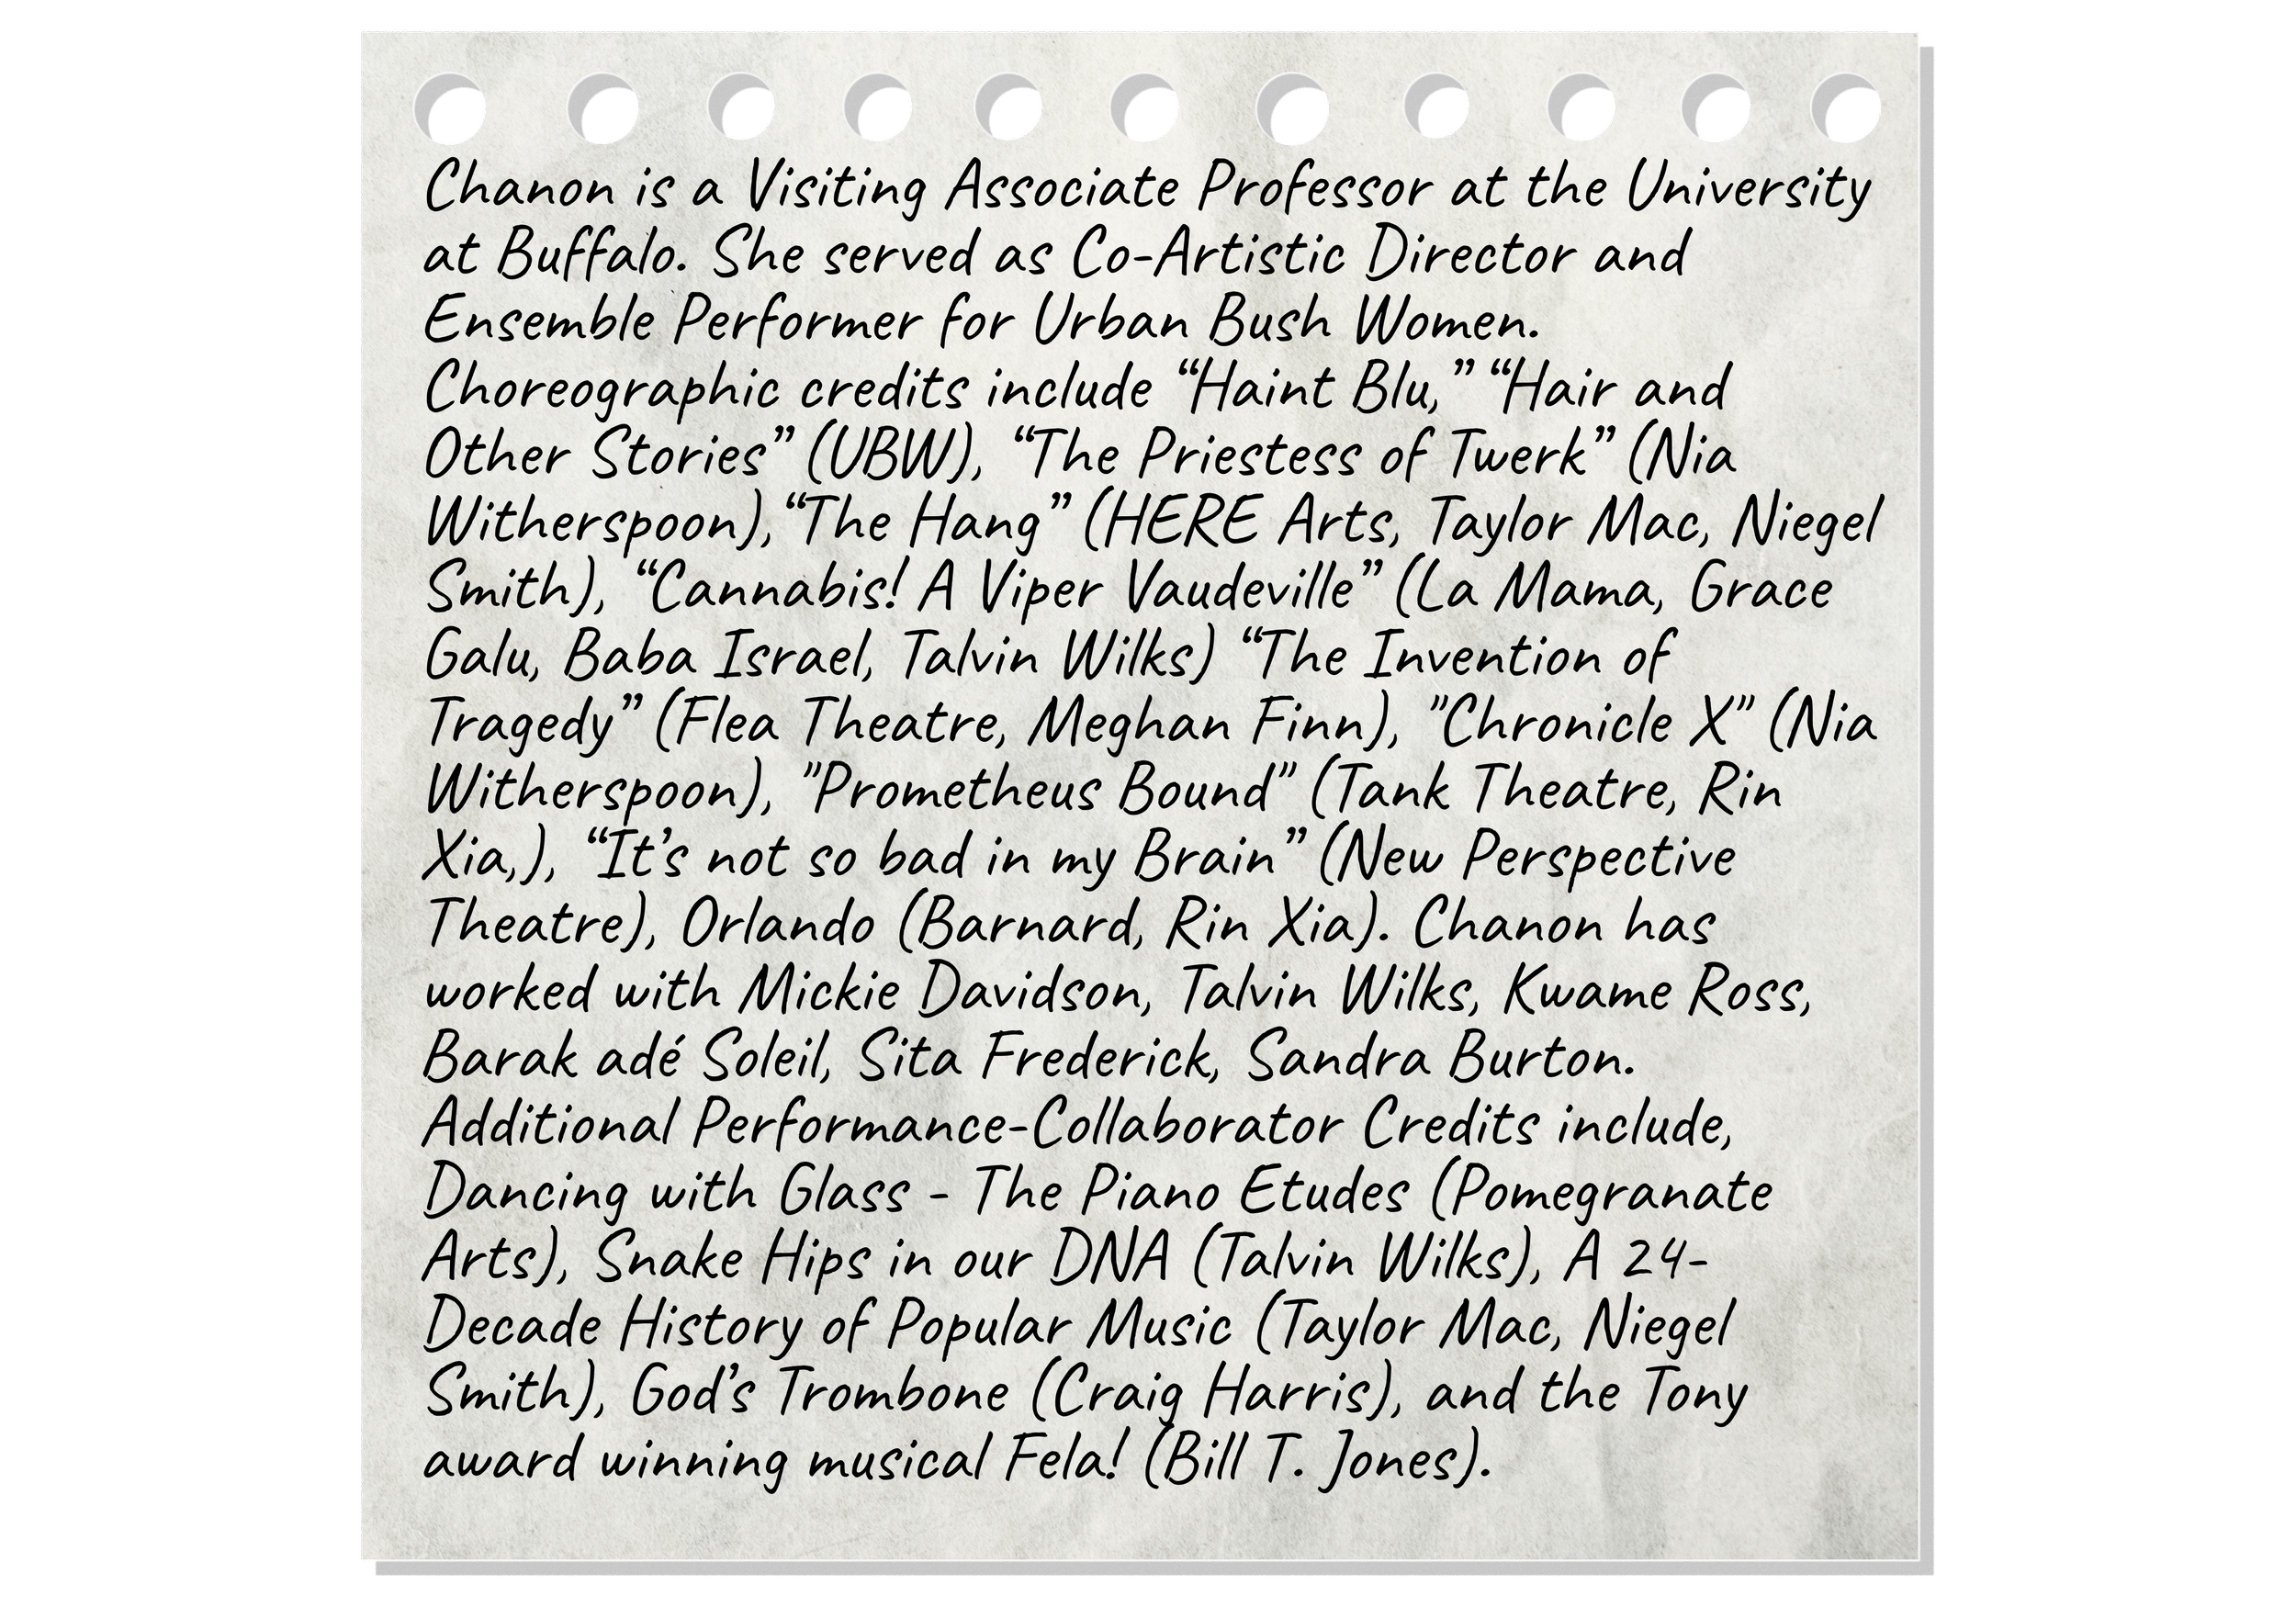 Chanon is a Visiting Associate Professor at the University
at Buffalo. She served as Co-Artistic Director and
Ensemble Performer for Urban Bush Women.
Choreographic credits include “Haint Blu,” “Hair and
Other Stories” (UBW), “The Priestess of Twerk” (Nia
Witherspoon),“The Hang” (HERE Arts, Taylor Mac, Niegel
Smith), “Cannabis! A Viper Vaudeville” (La Mama, Grace
Galu, Baba Israel, Talvin Wilks) “The Invention of
Tragedy” (Flea Theatre, Meghan Finn), "Chronicle X" (Nia
Witherspoon), "Prometheus Bound" (Tank Theatre, Rin
Xia,), “It’s not so bad in my Brain” (New Perspective
Theatre), Orlando (Barnard, Rin Xia). Chanon has
worked with Mickie Davidson, Talvin Wilks, Kwame Ross,
Barak adé Soleil, Sita Frederick, Sandra Burton.
Additional Performance-Collaborator Credits include,
Dancing with Glass - The Piano Etudes (Pomegranate
Arts), Snake Hips in our DNA (Talvin Wilks), A 24-
Decade History of Popular Music (Taylor Mac, Niegel
Smith), God’s Trombone (Craig Harris), and the Tony
award winning musical Fela! (Bill T. Jones).